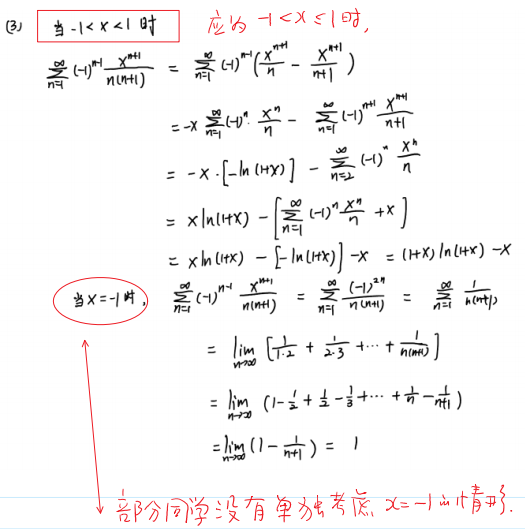 (3) 当 -1 < x < 1 时 应为 -1 < x ≤ 1 时,
∑_{n=1}^{∞} (-1)^{n-1} x^{n+1}/(n(n+1)) = ∑_{n=1}^{∞} (-1)^{n-1} (x^{n+1}/n - x^{n+1}/(n+1))
= -x ∑_{n=1}^{∞} (-1)^n · x^n/n - ∑_{n=1}^{∞} (-1)^{n+1} x^{n+1}/(n+1)
= -x · [-ln(1+x)] - ∑_{n=2}^{∞} (-1)^n x^n/n
= x ln(1+x) - [∑_{n=1}^{∞} (-1)^n x^n/n + x]
= x ln(1+x) - [-ln(1+x)] - x = (1+x) ln(1+x) - x
当 x = -1 时, ∑_{n=1}^{∞} (-1)^{n-1} x^{n+1}/(n(n+1)) = ∑_{n=1}^{∞} (-1)^{2n}/(n(n+1)) = ∑_{n=1}^{∞} 1/(n(n+1))
= lim_{n→∞} [1/(1·2) + 1/(2·3) + ··· + 1/(n(n+1))]
= lim_{n→∞} (1 - 1/2 + 1/2 - 1/3 + ··· + 1/n - 1/(n+1))
= lim_{n→∞} (1 - 1/(n+1)) = 1
部分同学没有单独考虑 x = -1 的情形.